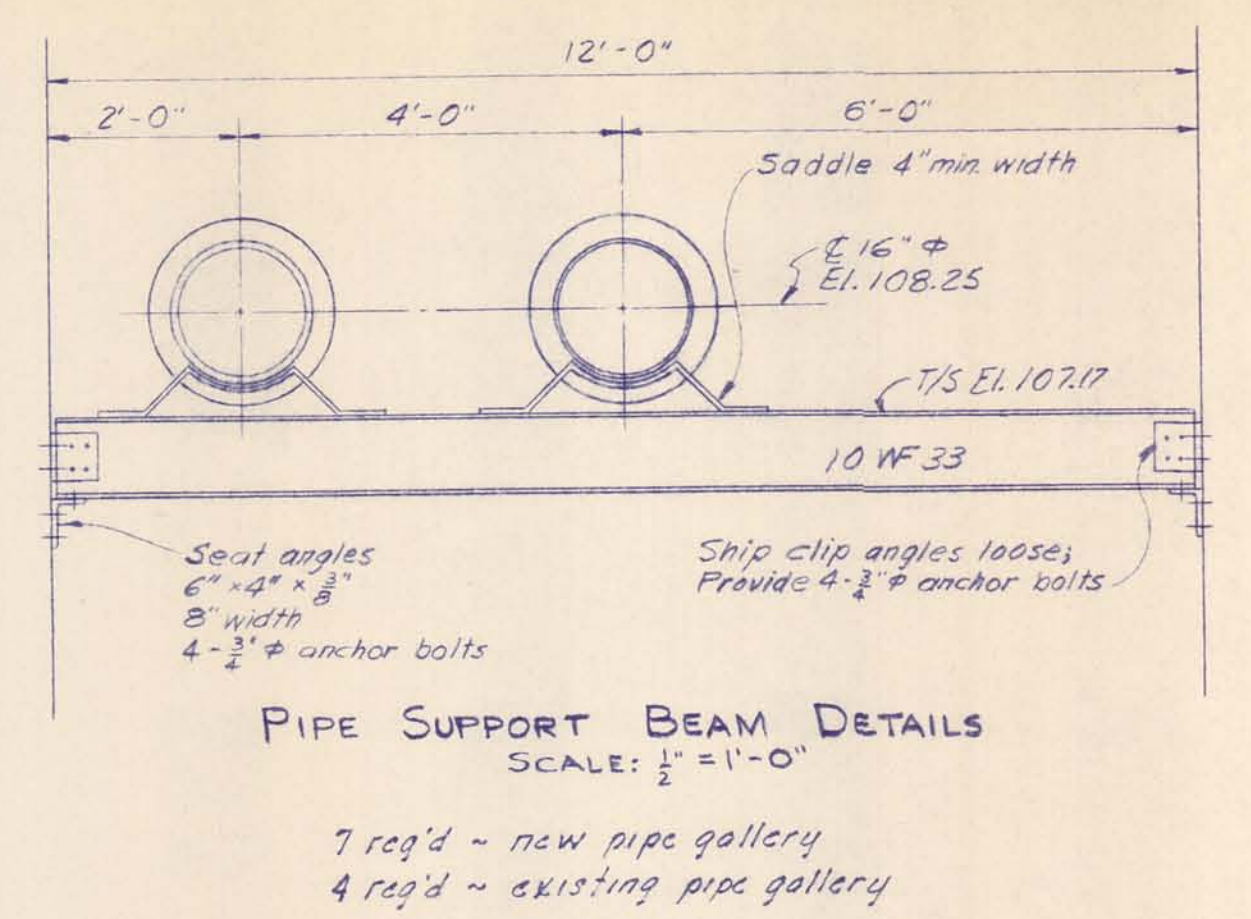 12'-0"
2'-0"
4'-0"
6'-0"
Saddle 4" min. width
℄ 16" Φ
El. 108.25
T/S El. 107.17
10 WF 33
Seat angles
6" x 4" x 3/8"
8" width
4 - 3/4" Φ anchor bolts
Ship clip angles loose;
Provide 4 - 3/4" Φ anchor bolts
PIPE SUPPORT BEAM DETAILS
SCALE: 1/2" = 1'-0"
7 req'd ~ new pipe gallery
4 req'd ~ existing pipe gallery